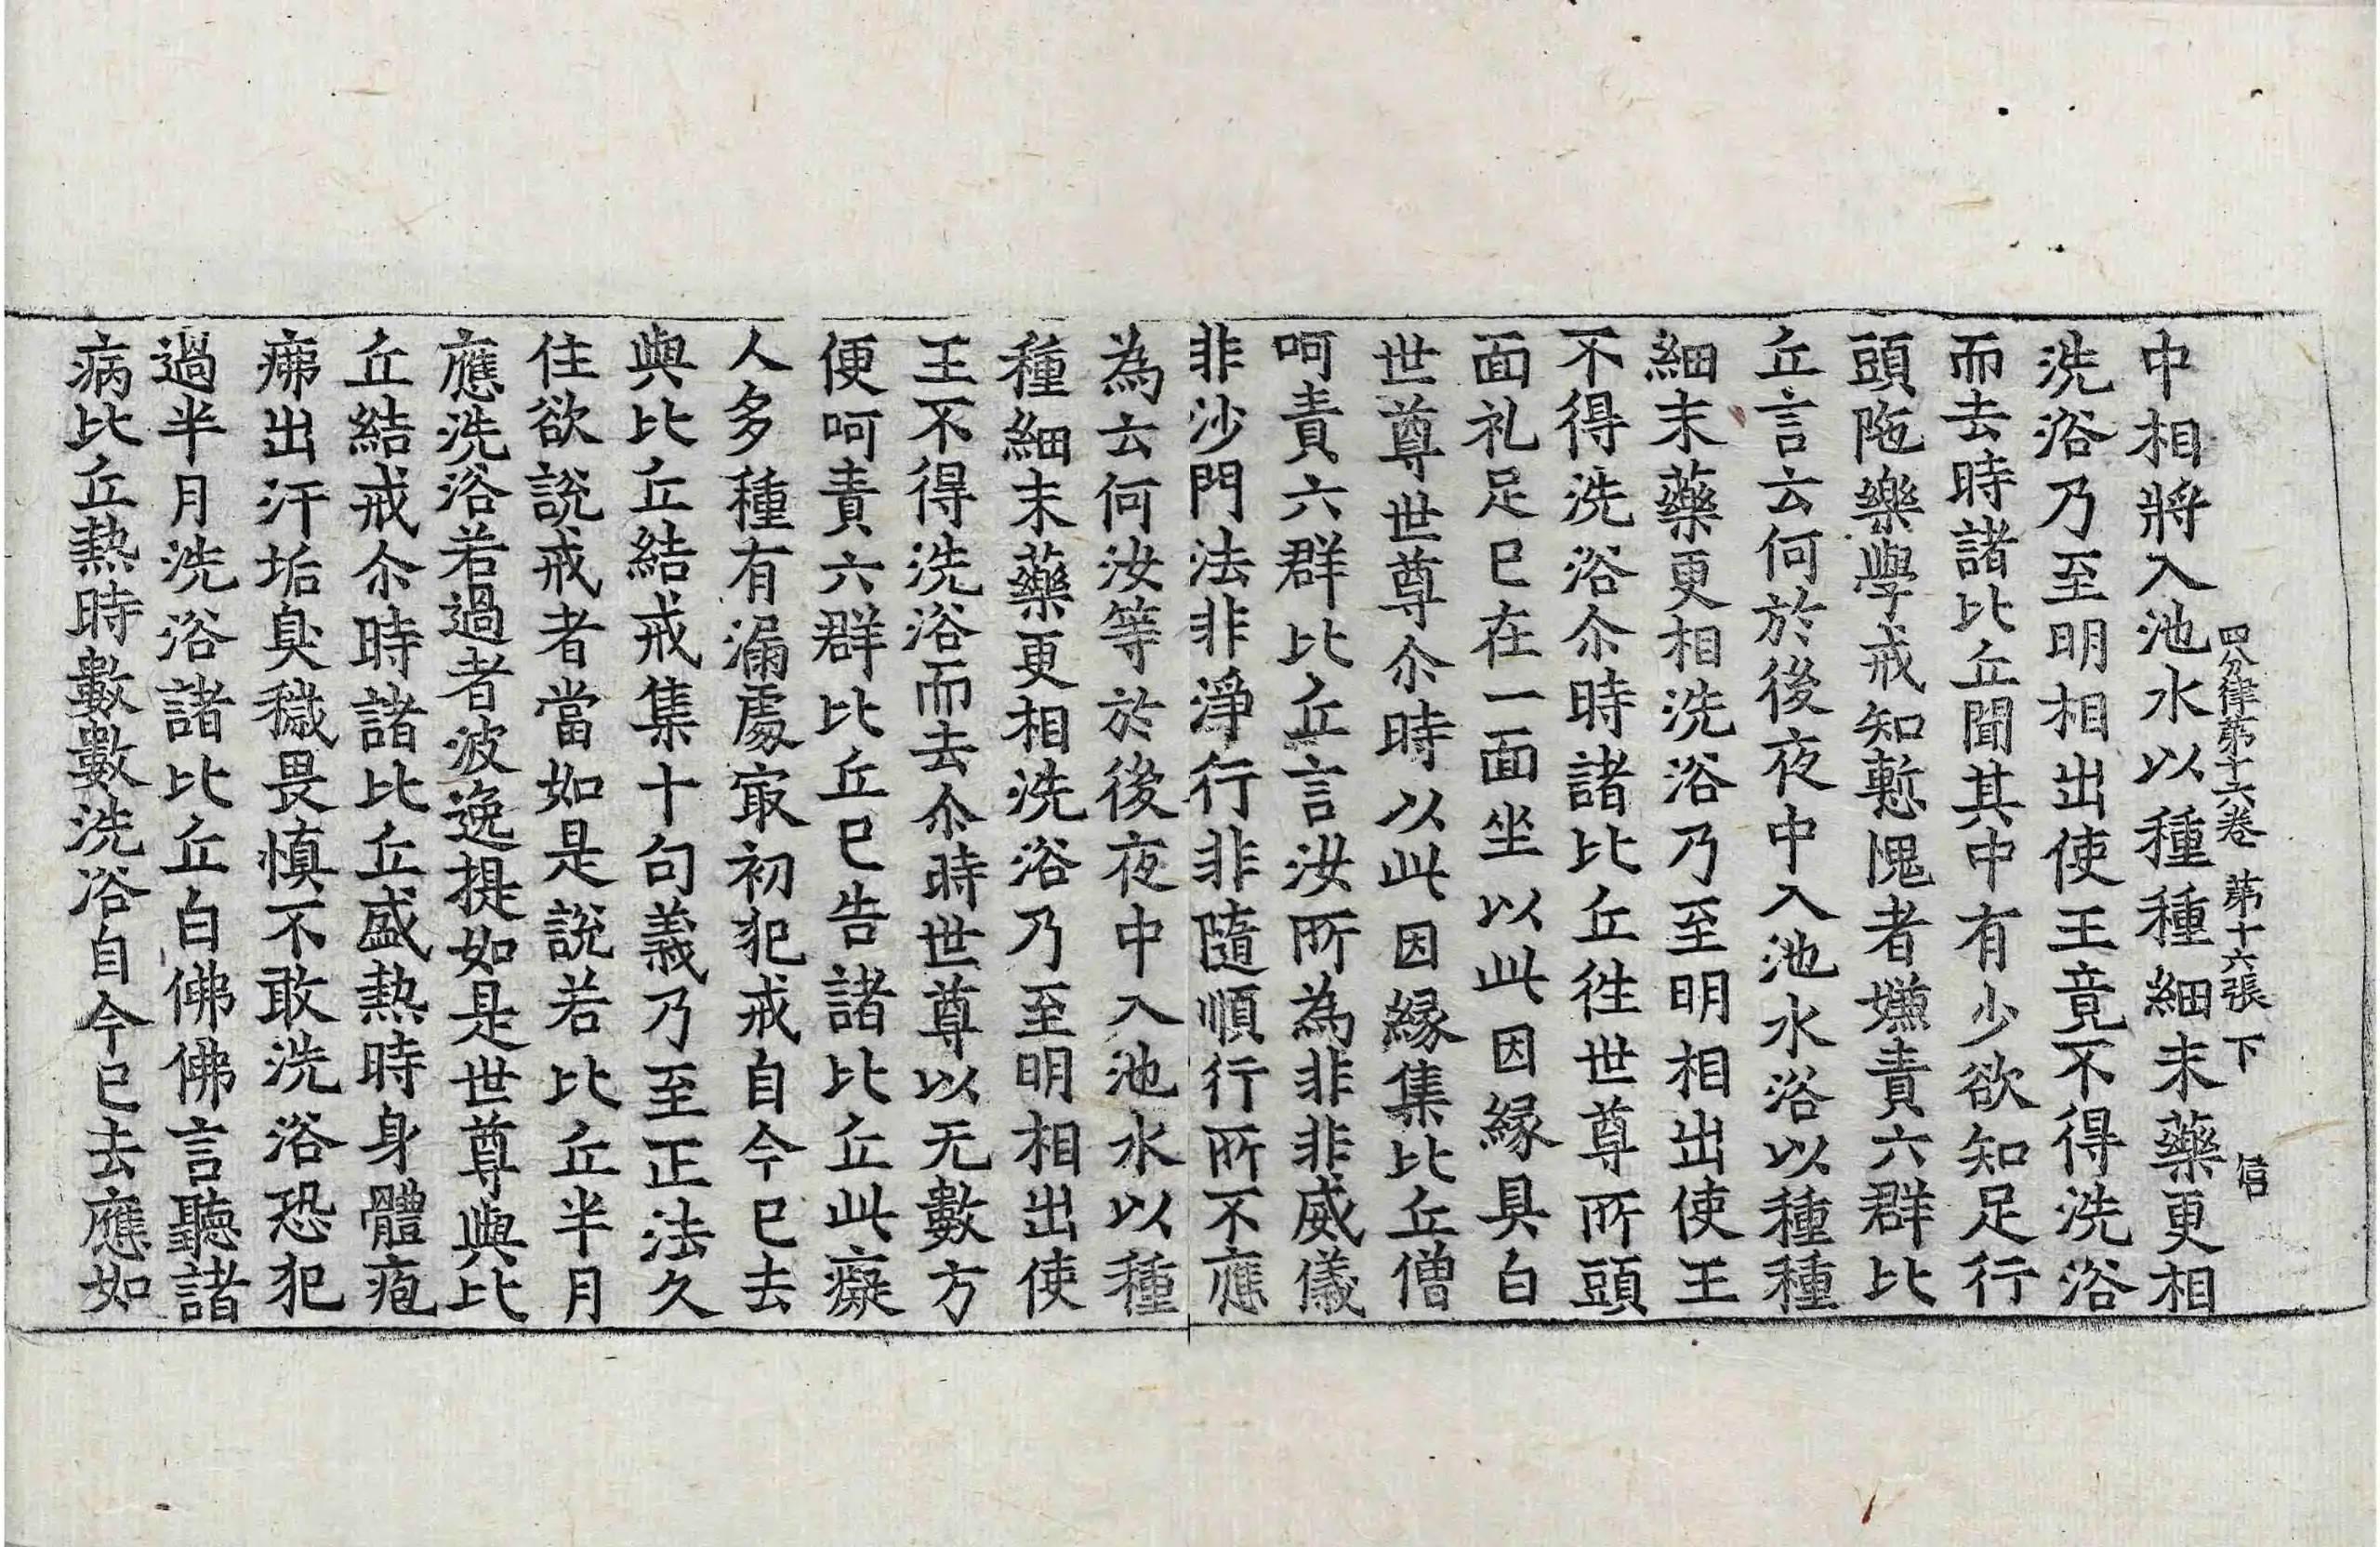 四分律第十六卷 第十六張 下 信
中相將入池水以種種細末藥更相
洗浴乃至明相出使王竟不得洗浴
而去時諸比丘聞其中有少欲知足行
頭陁樂學戒知慙愧者嫌責六群比
丘言云何於後夜中入池水浴以種種
細末藥更相洗浴乃至明相出使王
不得洗浴尒時諸比丘徃世尊所頭
面礼足已在一面坐以此因緣具白
世尊世尊尒時以此因緣集比丘僧
呵責六群比丘言汝所為非非威儀
非沙門法非淨行非隨順行所不應
為云何汝等於後夜中入池水以種
種細末藥更相洗浴乃至明相出使
王不得洗浴而去尒時世尊以无數方
便呵責六群比丘已告諸比丘此癡
人多種有漏處冣初犯戒自今已去
與比丘結戒集十句義乃至正法久
住欲說戒者當如是說若比丘半月
應洗浴若過者波逸提如是世尊與比
丘結戒尒時諸比丘盛熱時身體疱
疿出汗垢臭穢畏慎不敢洗浴恐犯
過半月洗浴諸比丘白佛佛言聽諸
病比丘熱時數數洗浴自今已去應如